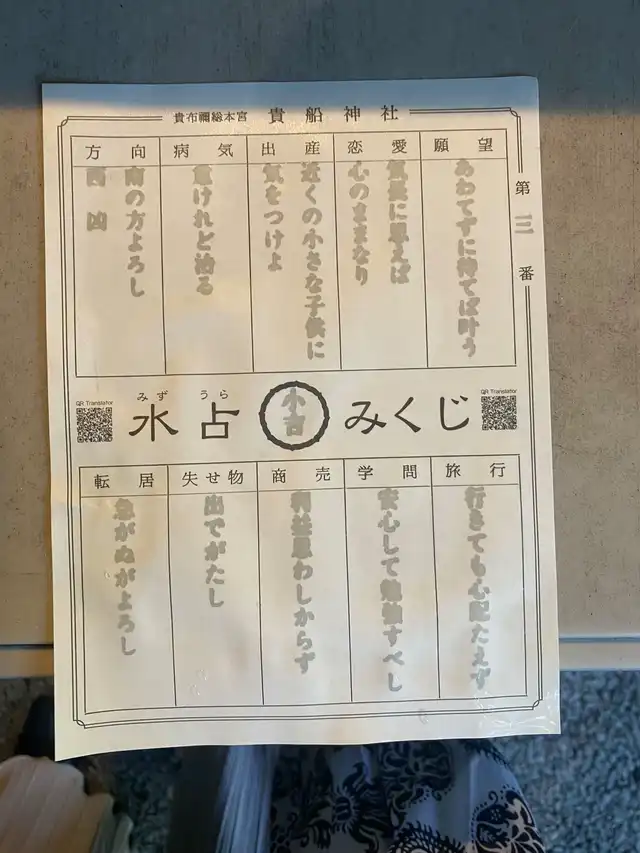 貴布禰総本宮 貴船神社
第三番
願望
あわてずに待てば叶う
恋愛
気長に思えば
心のままなり
出産
近くの小さな子供に
気をつけよ
病気
危けれど治る
方向
南の方よろし
西 凶
QR Translator
みず うら
水占みくじ
小吉
QR Translator
旅行
行きても心配たえず
学問
安心して勉強すべし
商売
利益思わしからず
失せ物
出でがたし
転居
急がぬがよろし